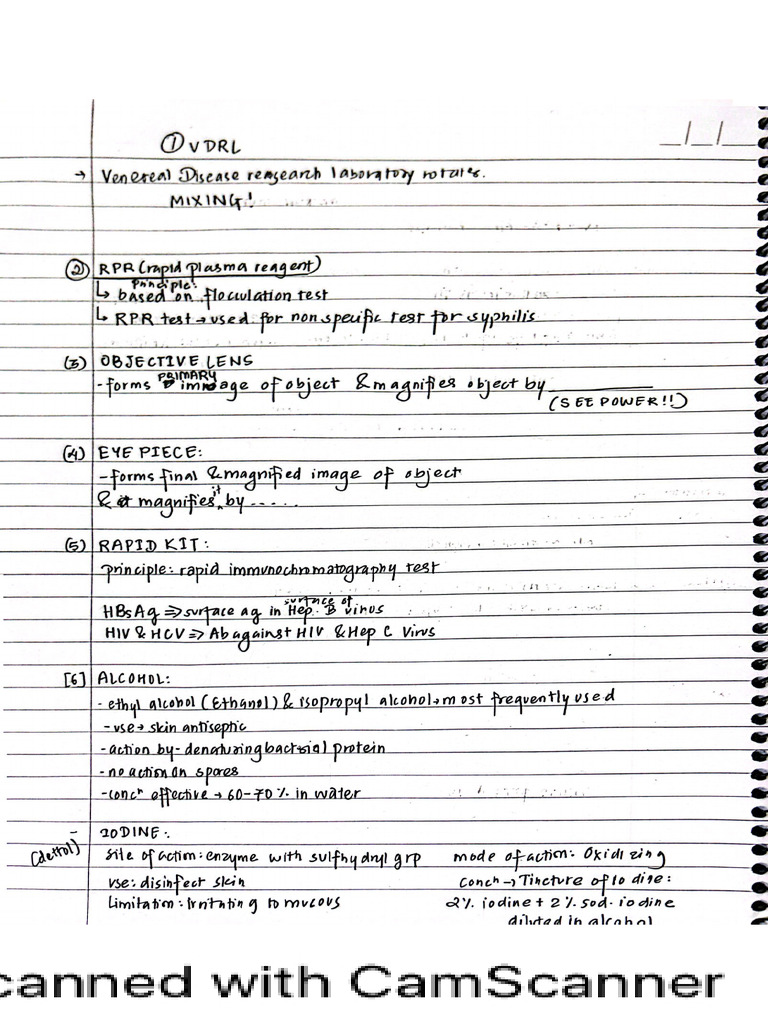 ① VDRL
_/_/_
→ Venereal Disease reasearch laboratory rotates.
MIXING!
② RPR (rapid plasma reagent)
principle:
↳ based on flocculation test
↳ RPR test → used for non specific test for syphilis
(3) OBJECTIVE LENS
PRIMARY
- forms image of object & magnifies object by ________
(SEE POWER!!)
(4) EYE PIECE:
- forms final & magnified image of object
& magnifies it by .....
(5) RAPID KIT:
principle: rapid immunochromatography test
surface of
HBsAg ⇒ surface ag in Hep. B virus
HIV & HCV ⇒ Ab against HIV & Hep C Virus
[6] ALCOHOL:
- ethyl alcohol (Ethanol) & isopropyl alcohol → most frequently used
- use → skin antiseptic
- action by - denaturing bacterial protein
- no action on spores
- concⁿ effective → 60-70% in water
- IODINE:
(dettol) Site of action: enzyme with sulfhydryl grp mode of action: Oxidizing
use: disinfect skin concn → Tincture of Iodine:
Limitation: Irritating to mucous 2% iodine + 2% sod. iodine
diluted in alcohol
canned with CamScanner